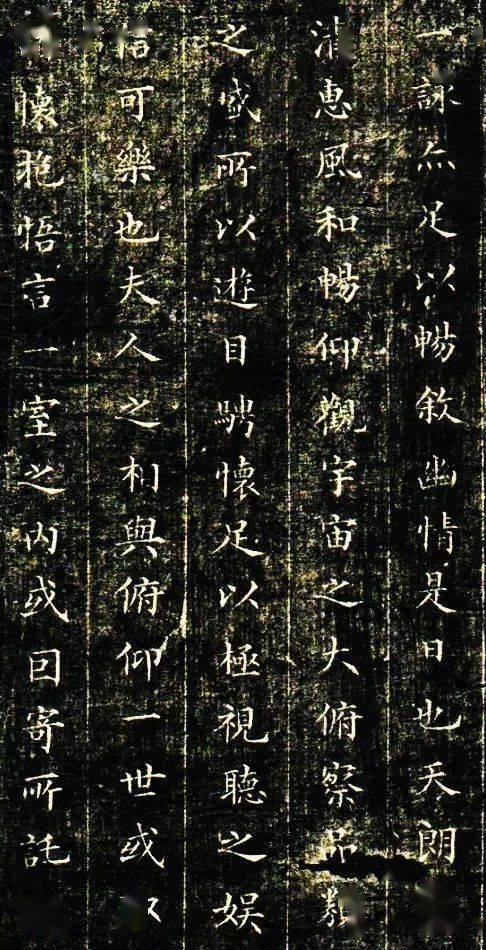 一詠亦足以暢敘幽情是日也天朗
清惠風和暢仰觀宇宙之大俯察品類
之盛所以遊目騁懷足以極視聽之娛
信可樂也夫人之相與俯仰一世或取
懷抱悟言一室之內或因寄所託